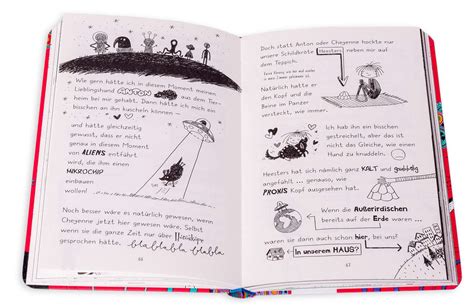 Wie gern hätte ich in diesem Moment meinen
Lieblingshund ANTON aus dem Tier-
heim bei mir gehabt. Dann hätte ich mich ein
bisschen an ihn kuscheln können
und hätte gleichzeitig
gewusst, dass er
nicht in diesem Moment
von ALIENS entführt
wird, die ihm einen
MIKROCHIP
einbauen
wollen!
Noch besser wäre es natürlich gewesen, wenn
Cheyenne jetzt hier gewesen wäre. Selbst
wenn sie die ganze Zeit nur über
gesprochen hätte. blablabla blabla
66
Doch statt Anton oder Cheyenne hockte nur
unsere Schildkröte Heesters neben mir auf
dem Teppich.
Natürlich hätte er
den Kopf und die
Beine im Panzer
versteckt, wie immer.
Ich hab ihn ein bisschen
gestreichelt, aber das ist
nicht das Gleiche, wie einen
Hund zu knuddeln.
Heesters hat sich nämlich ganz KALT und
angefühlt. ... genauso, wie
Kopf ausgesehen hat.
Wenn die Außerirdischen
bereits auf der Erde waren ...
... waren sie dann auch schon hier, bei uns!
In unserem HAUS?
67